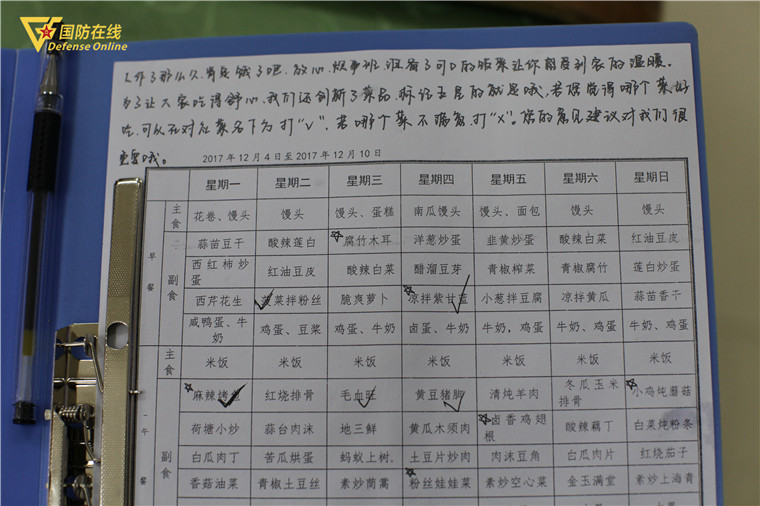 国防在线
Defense Online
工作了那么久,肯定饿了吧,放心,炊事班准备了可口的饭菜让你感受到家的温暖。
为了让大家吃得舒心,我们还创新了菜品,标注五星的就是哦,若你觉得哪个菜好
吃,可以在对应菜名下方打“√”,若哪个菜不满意,打“×”,您的意见建议对我们很
重要哦。
2017年12月4日至2017年12月10日
星期一 星期二 星期三 星期四 星期五 星期六 星期日
早餐
主食 花卷、馒头 馒头 馒头、蛋糕 南瓜馒头 馒头、面包 馒头 馒头
副食 蒜苗豆干 酸辣莲白 ☆腐竹木耳 洋葱炒蛋 韭黄炒蛋 酸辣白菜 红油豆皮
西红柿炒蛋 红油豆皮 酸辣白菜 醋溜豆芽 青椒榨菜 青椒腐竹 莲白炒蛋
西芹花生 菠菜拌粉丝 ✓ 脆爽萝卜 ☆凉拌紫甘蓝 ✓ 小葱拌豆腐 凉拌黄瓜 蒜苗香干
咸鸭蛋、牛奶 鸡蛋、豆浆 鸡蛋、牛奶 卤蛋、牛奶 牛奶,鸡蛋 牛奶、鸡蛋 牛奶、鸡蛋
午
主食 米饭 米饭 米饭 米饭 米饭 米饭 米饭
副食 ☆麻辣烤鱼 ✓ 红烧排骨 毛血旺 ✓ 黄豆猪脚 ✓ 清炖羊肉 冬瓜玉米排骨 ☆小鸡炖蘑菇
荷塘小炒 蒜台肉沫 地三鲜 黄瓜木须肉 ☆卤香鸡翅根 酸辣藕丁 白菜炖粉条
白瓜肉丁 苦瓜烘蛋 蚂蚁上树. 土豆片炒肉 肉沫豆角 白瓜肉片 红烧茄子
香菇油菜 青椒土豆丝 素炒茼蒿 ☆粉丝娃娃菜 素炒空心菜 金玉满堂 素炒上海青